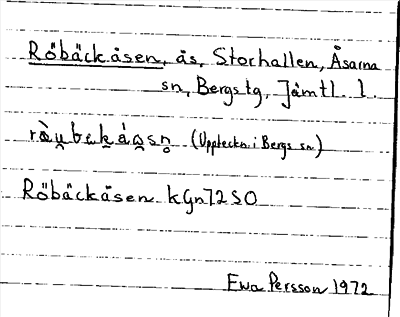 Röbäckåsen, ås, Storhallen, Åsarna
sn, Bergs tg, Jämtl. l.
(Uppteckn. i Bergs sn)
Röbäckåsen kGn72SO
Ewa Persson 1972